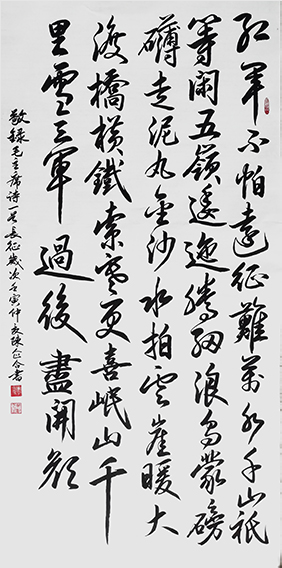 紅軍不怕遠征難萬水千山祇
等閑五嶺逶迤騰細浪烏蒙磅
礴走泥丸金沙水拍雲崖暖大
渡橋橫鐵索寒更喜岷山千
里雪三軍過後盡開顏
敬錄毛主席詩一首長征歲次壬寅仲夏陳合書